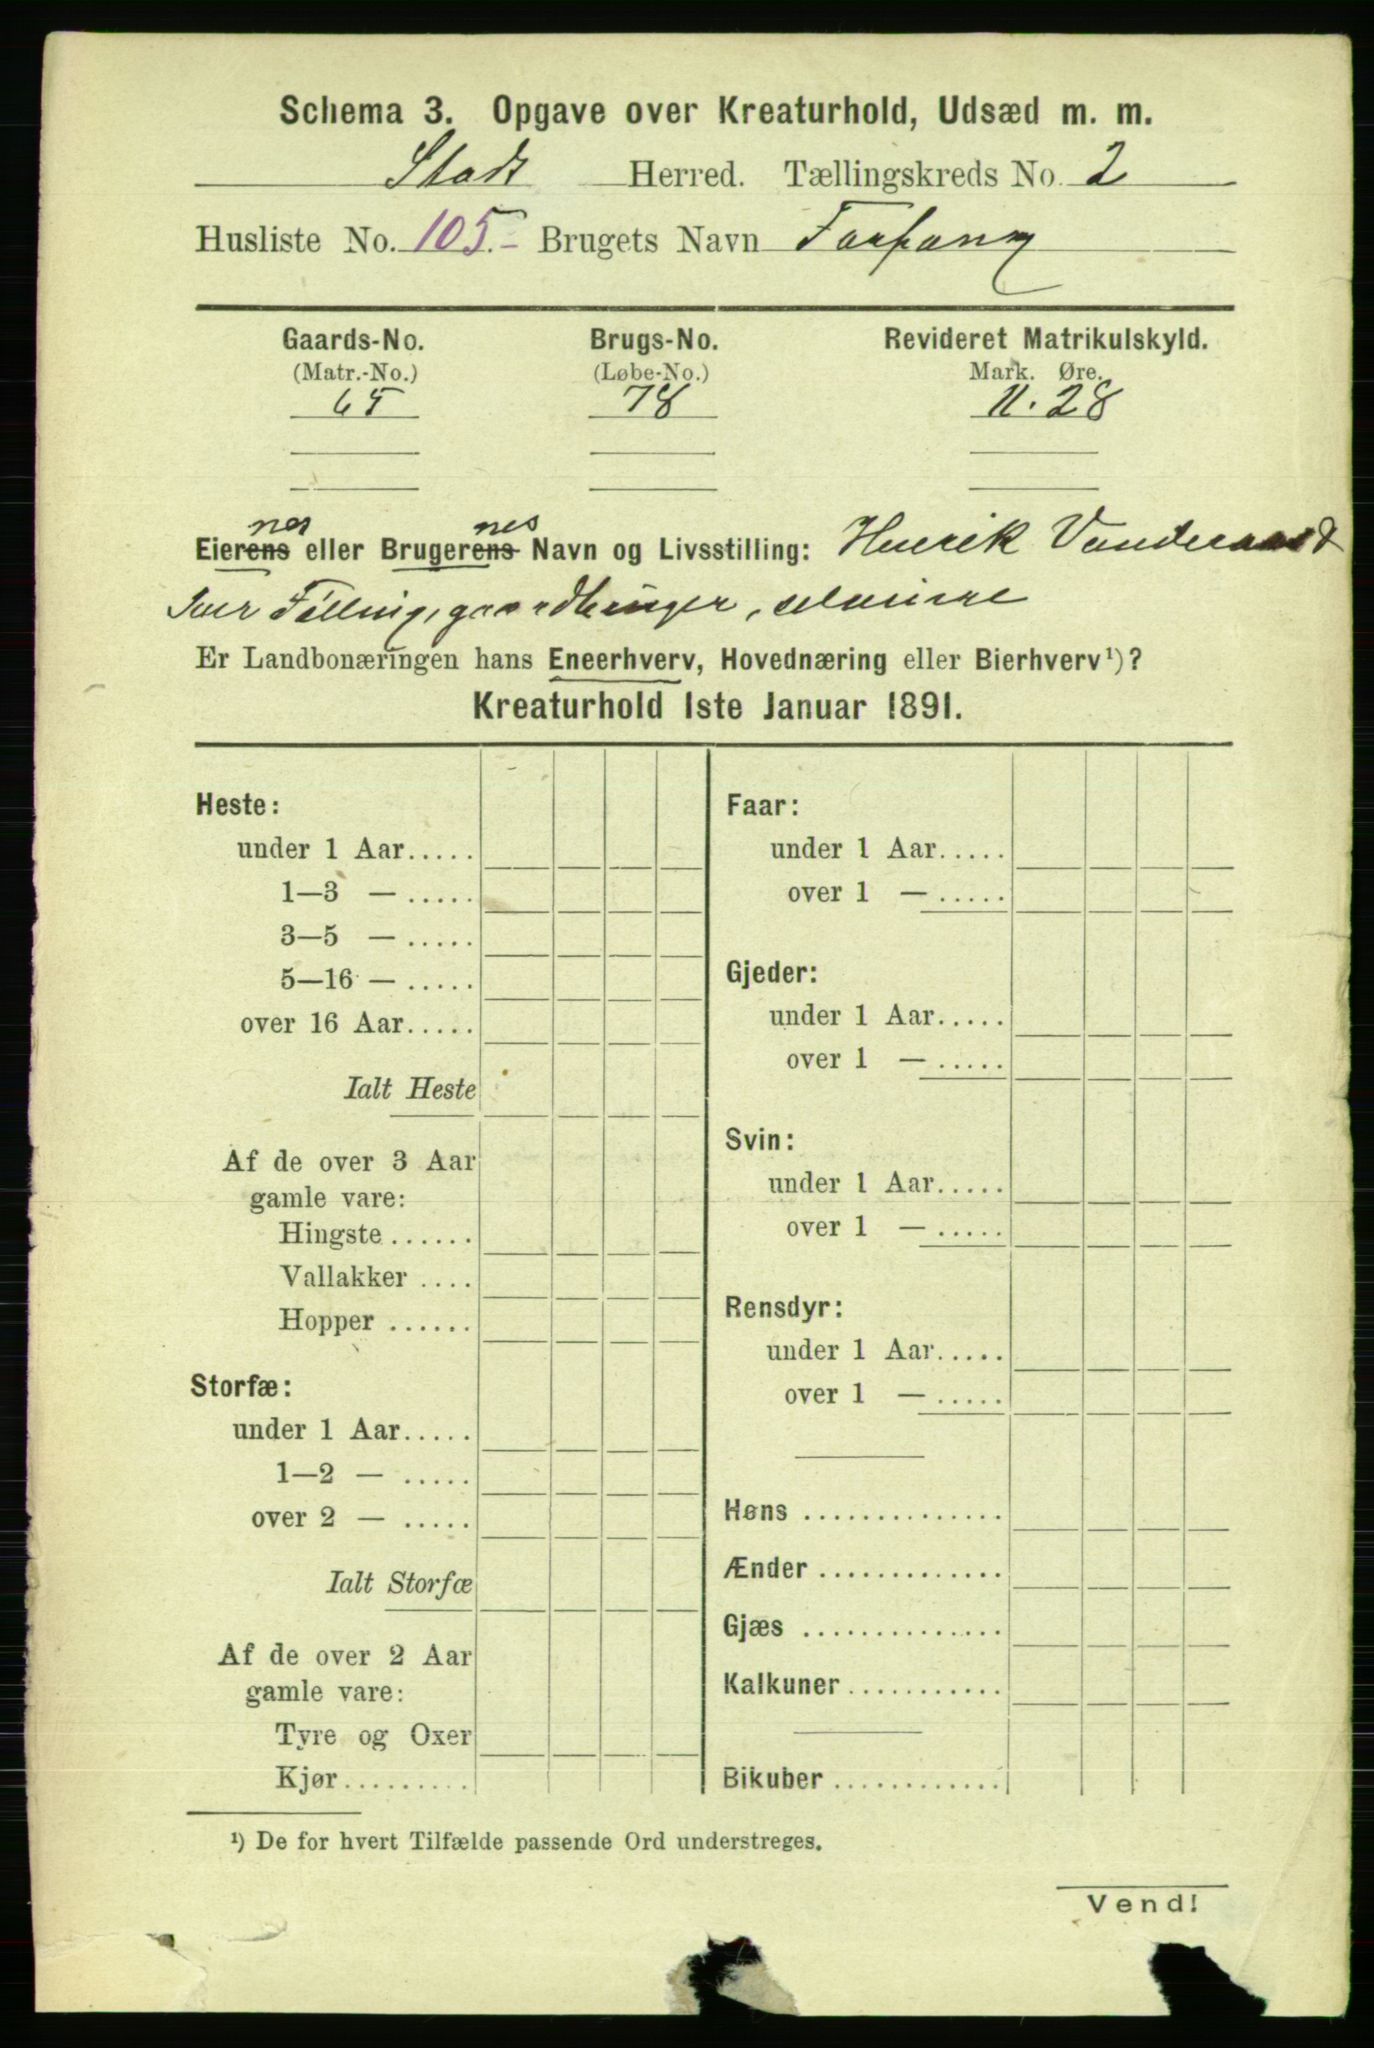 Schema 3. Opgave over Kreaturhold, Udsæd m. m.
Stads Herred. Tællingskreds No. 2
Husliste No. 105.- Brugets Navn
Gaards-No. Brugs-No. Revideret Matrikulskyld.
(Matr.-No.) (Løbe-No.) Mark. Øre.
65 78 11.28
nes nes
Eierens eller Brugerens Navn og Livsstilling: Henrik
Iver Følling, gaardbruger, selveiere
Er Landbonæringen hans Eneerhverv, Hovednæring eller Bierhverv¹)?
Kreaturhold 1ste Januar 1891.
Heste:
under 1 Aar.....
1—3 — .....
3—5 — .....
5—16 — .....
over 16 Aar.....
Ialt Heste
Af de over 3 Aar
gamle vare:
Hingste......
Vallakker ....
Hopper ......
Storfæ:
under 1 Aar.....
1—2 — .....
over 2 — .....
Ialt Storfæ
Af de over 2 Aar
gamle vare:
Tyre og Oxer
Kjør.........
Faar:
under 1 Aar.....
over 1 — .....
Gjeder:
under 1 Aar.....
over 1 — .....
Svin:
under 1 Aar.....
over 1 — .....
Rensdyr:
under 1 Aar.....
over 1 — .....
Høns ..............
Ænder .............
Gjæs ..............
Kalkuner...........
Bikuber ............
¹) De for hvert Tilfælde passende Ord understreges.
Vend!